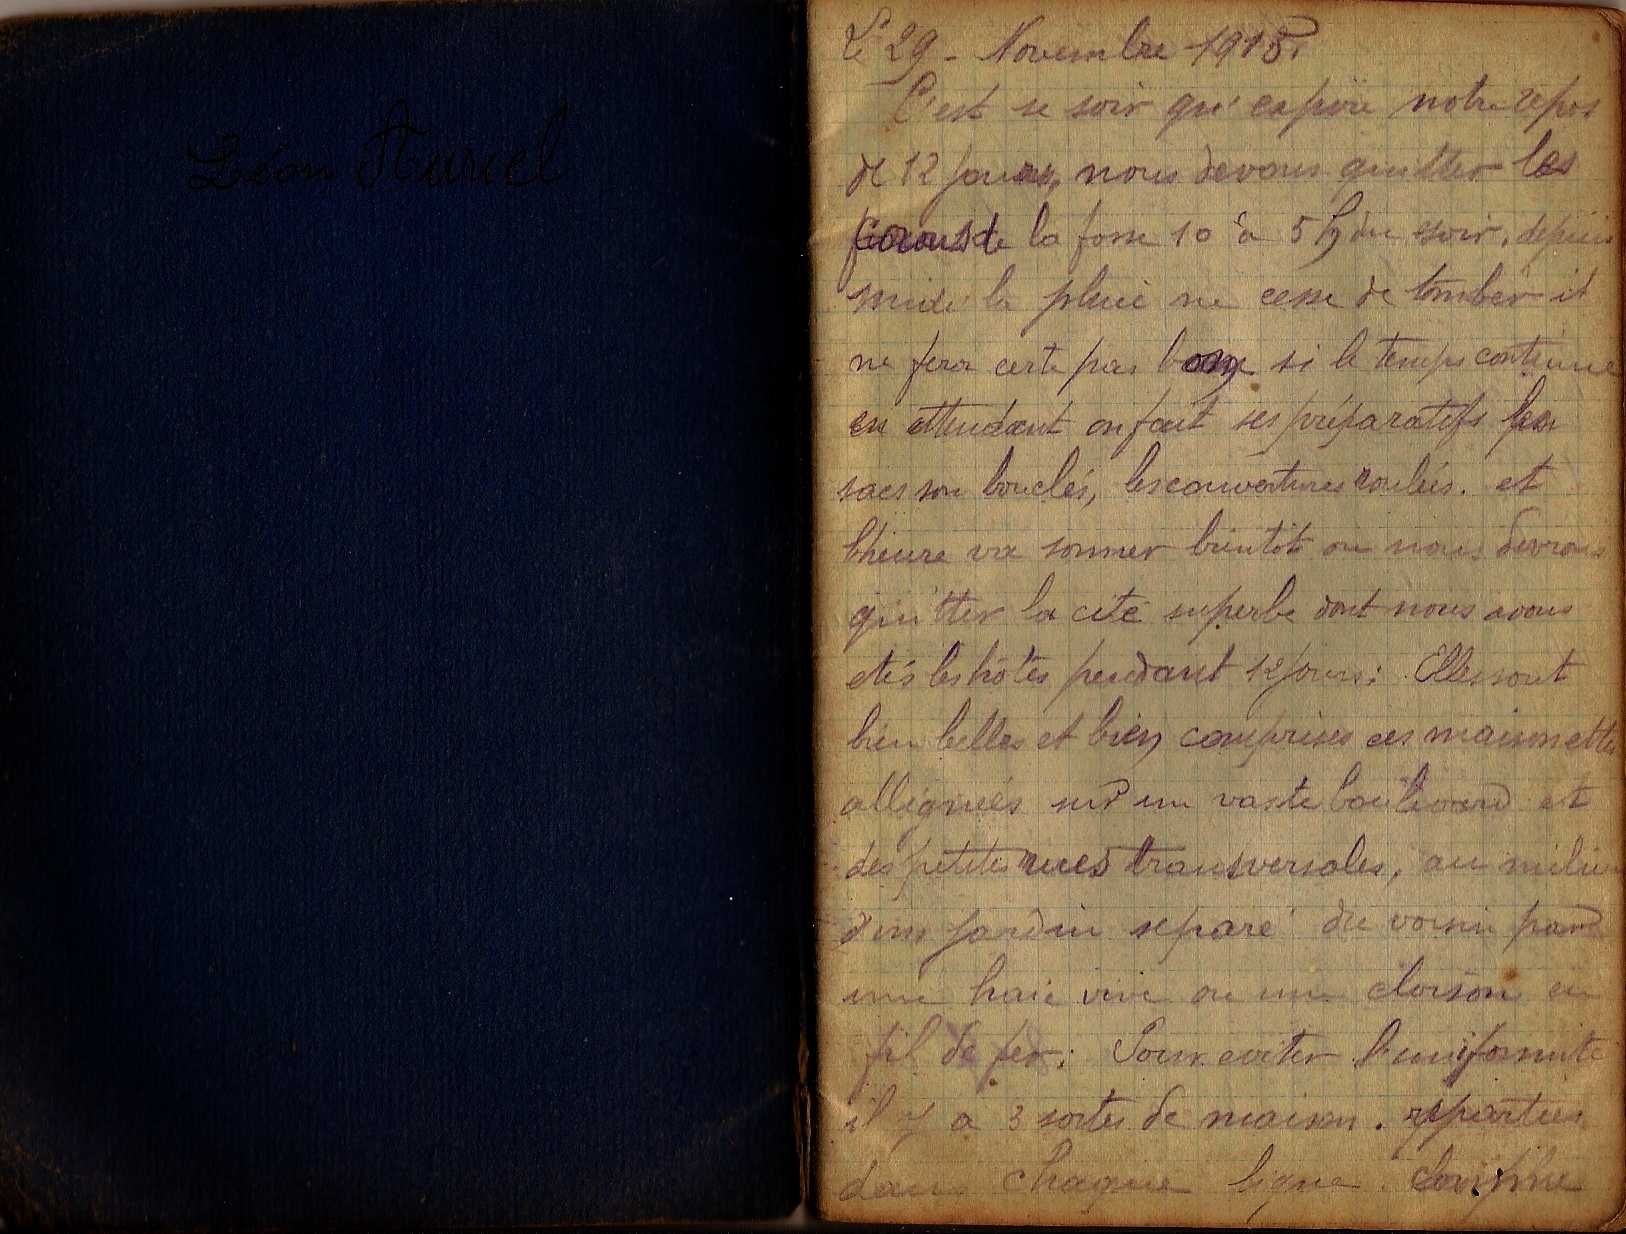 Léon
Le 29 - Novembre 1915.
C'est se soir qu'expire notre repos
de 12 jours, nous devons quitter les
de la fosse 10 à 5 h du soir. depuis
midi la pluie ne cesse de tomber il
ne fera certe pas bon si le temps continue
en attendant on fait ses préparatifs les
sacs son bouclés, les couvertures roulées. et
l'heure va sonner bientôt ou nous devrons
quitter la cité superbe dont nous avons
etés les hôtes pendant 12 jours: Elles sont
bien belles et bien comprises ces maisonettes
allignées sur un vaste boulevard et
des petites rues transversales, au milieu
d'un jardin separé du voisin par
une haie vive ou une cloison en
fil de fer: Pour eviter l'uniformite
il y a 3 sortes de maison. reparties
dans chaque ligne.